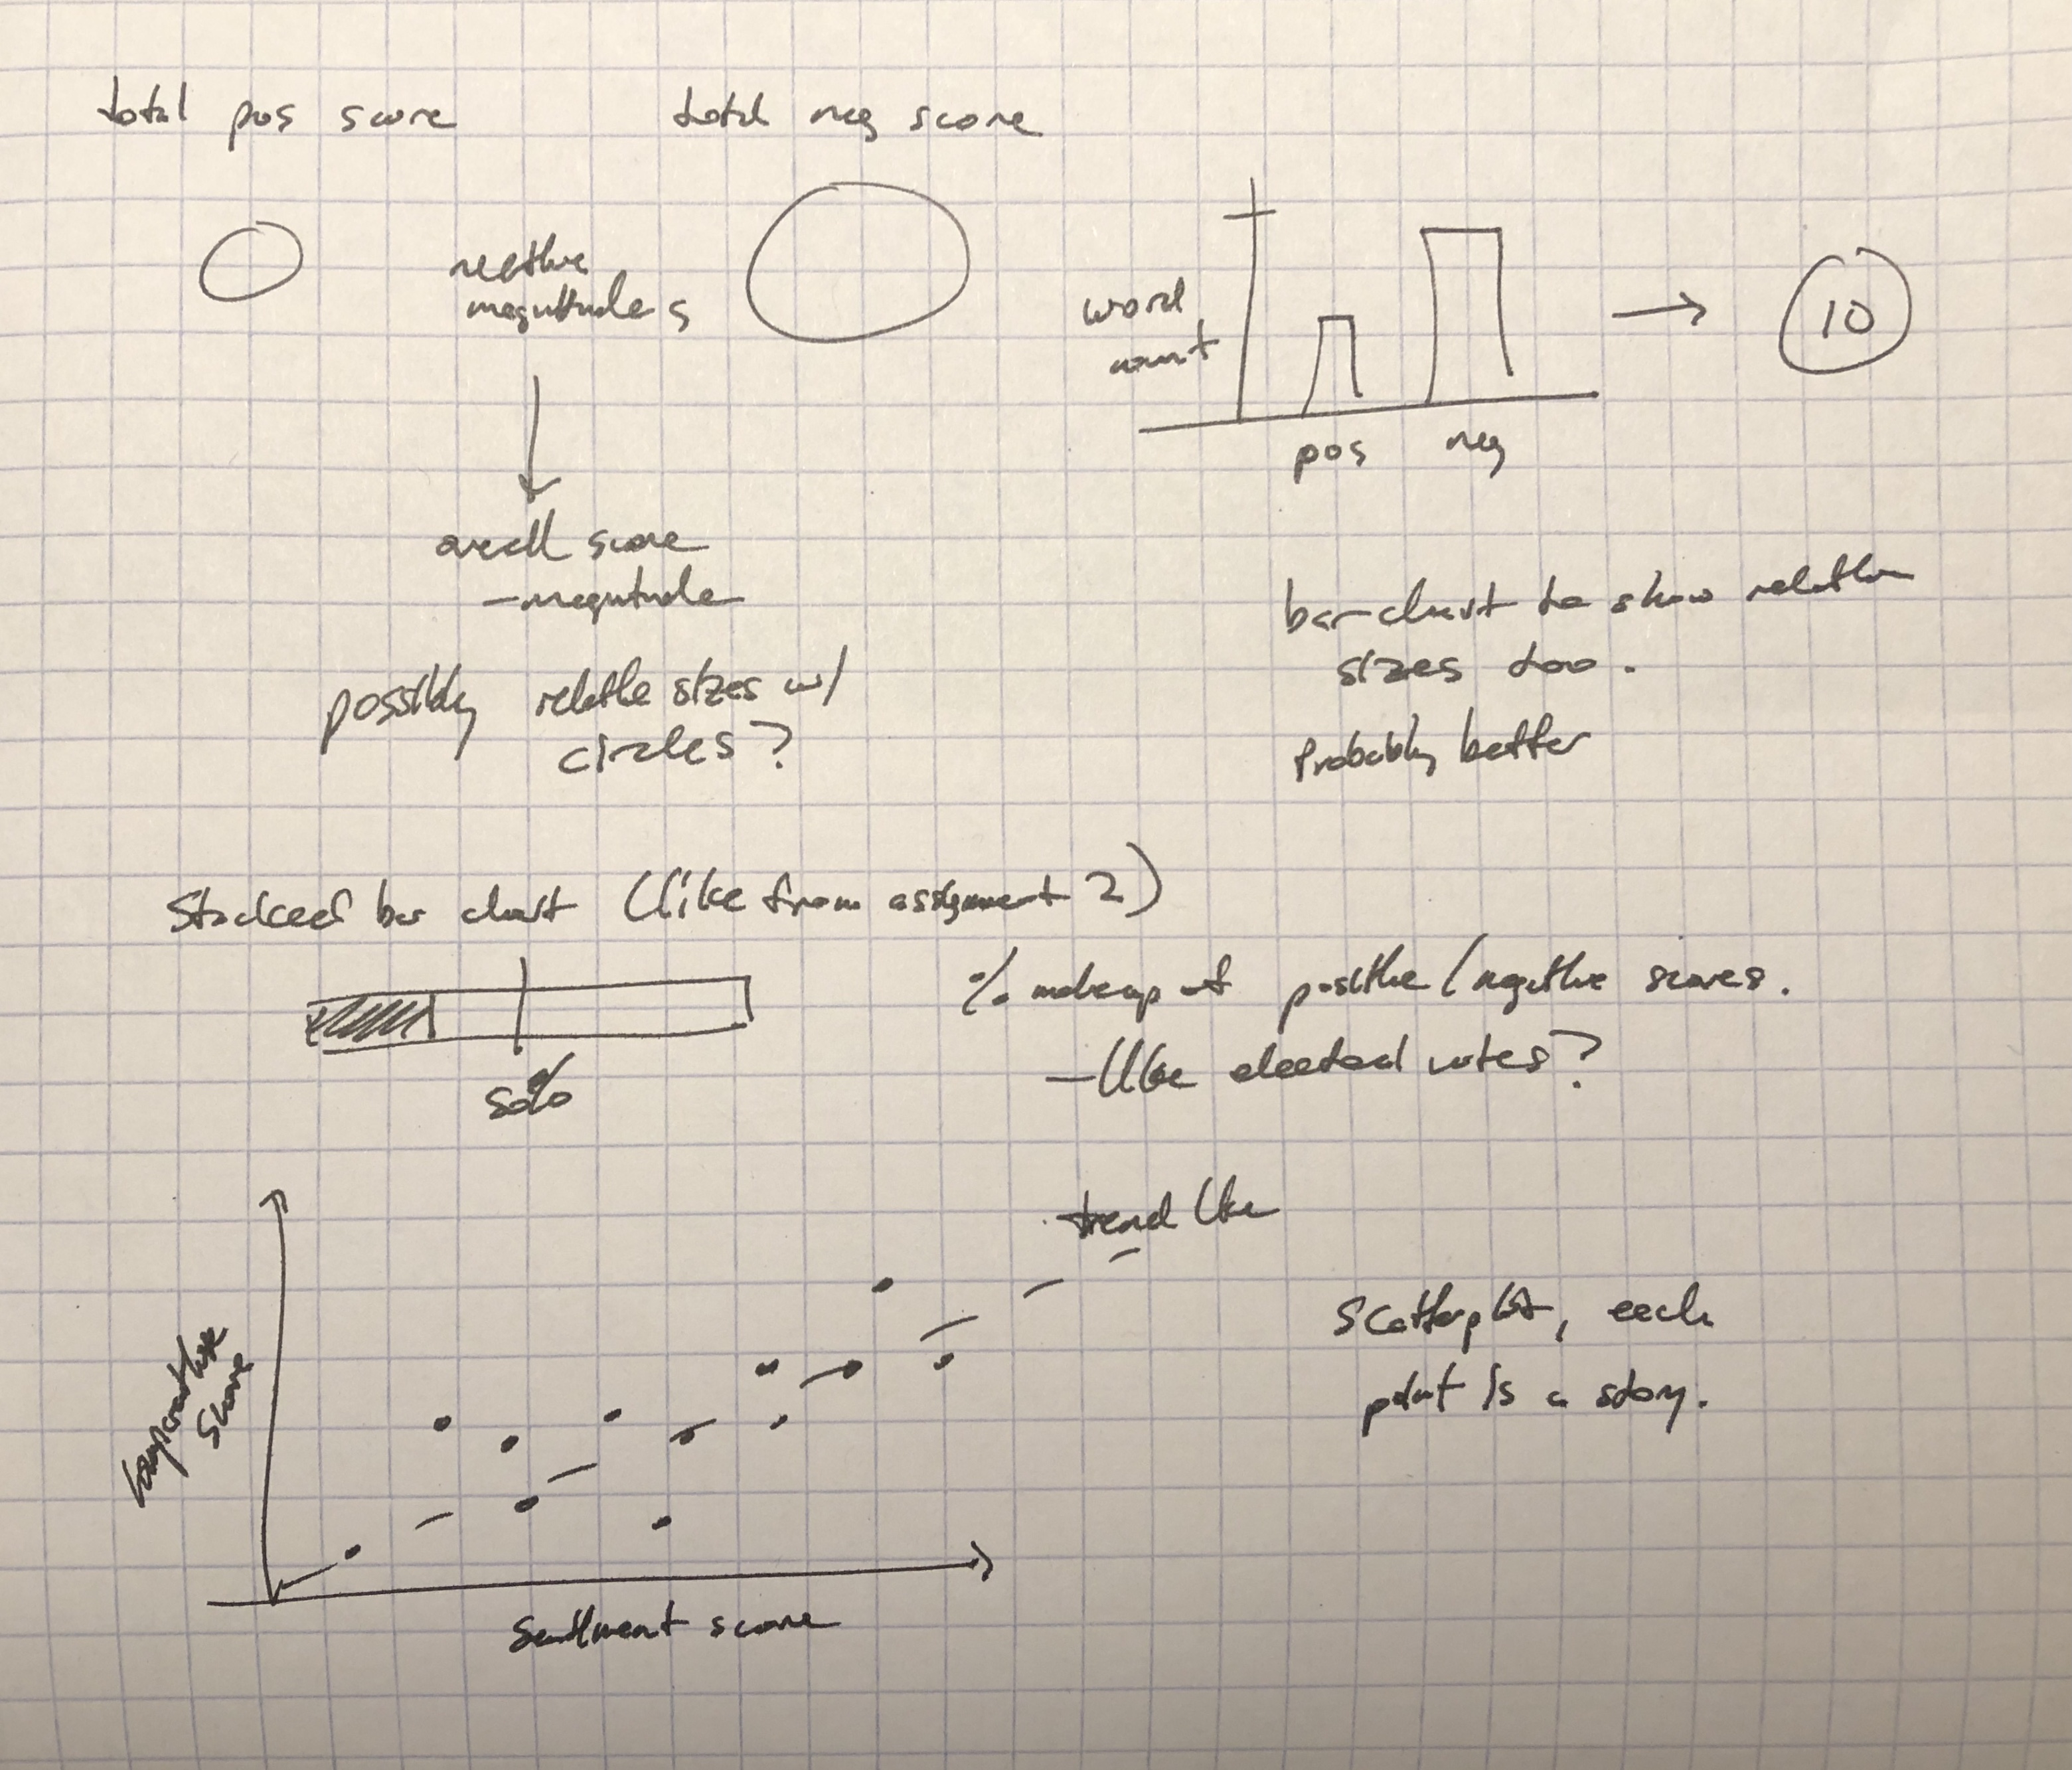 total pos score
total neg score
relative
magnitudes
overall score
- magnitude
possibly relative sizes w/
circles?
word
count
pos neg
10
bar-chart to show relative
sizes too.
Probably better
Stacked bar chart (like from assignment 2)
50%
% makeup of positive/negative scores.
- like electoral votes?
trend line
Score
Sentiment score
Scatterplot, each
point is a story.